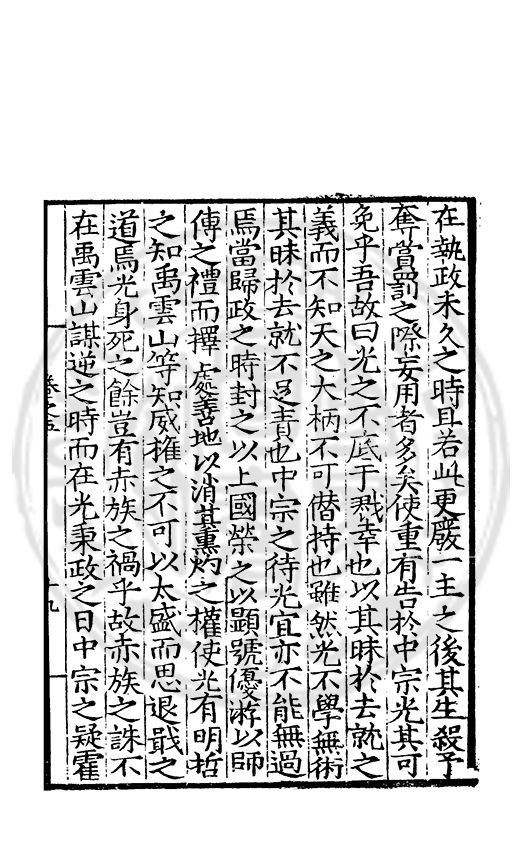 在執政未久之時且若此更廢一主之後其生殺予
奪賞罰之際妄用者多矣使重有告於中宗光其可
免乎吾故曰光之不底于戮幸也以其昧於去就之
義而不知天之大柄不可僭持也雖然光不學無術
其昧於去就不足責也中宗之待光宜亦不能無過
焉當歸政之時封之以上國榮之以顯號優游以師
傅之禮而擇處善地以消其熏灼之權使光有明哲
之知禹雲山等知威權之不可以太盛而思退戢之
道焉光身死之餘豈有赤族之禍乎故赤族之誅不
在禹雲山謀逆之時而在光秉政之日中宗之疑霍
卷之五
十九